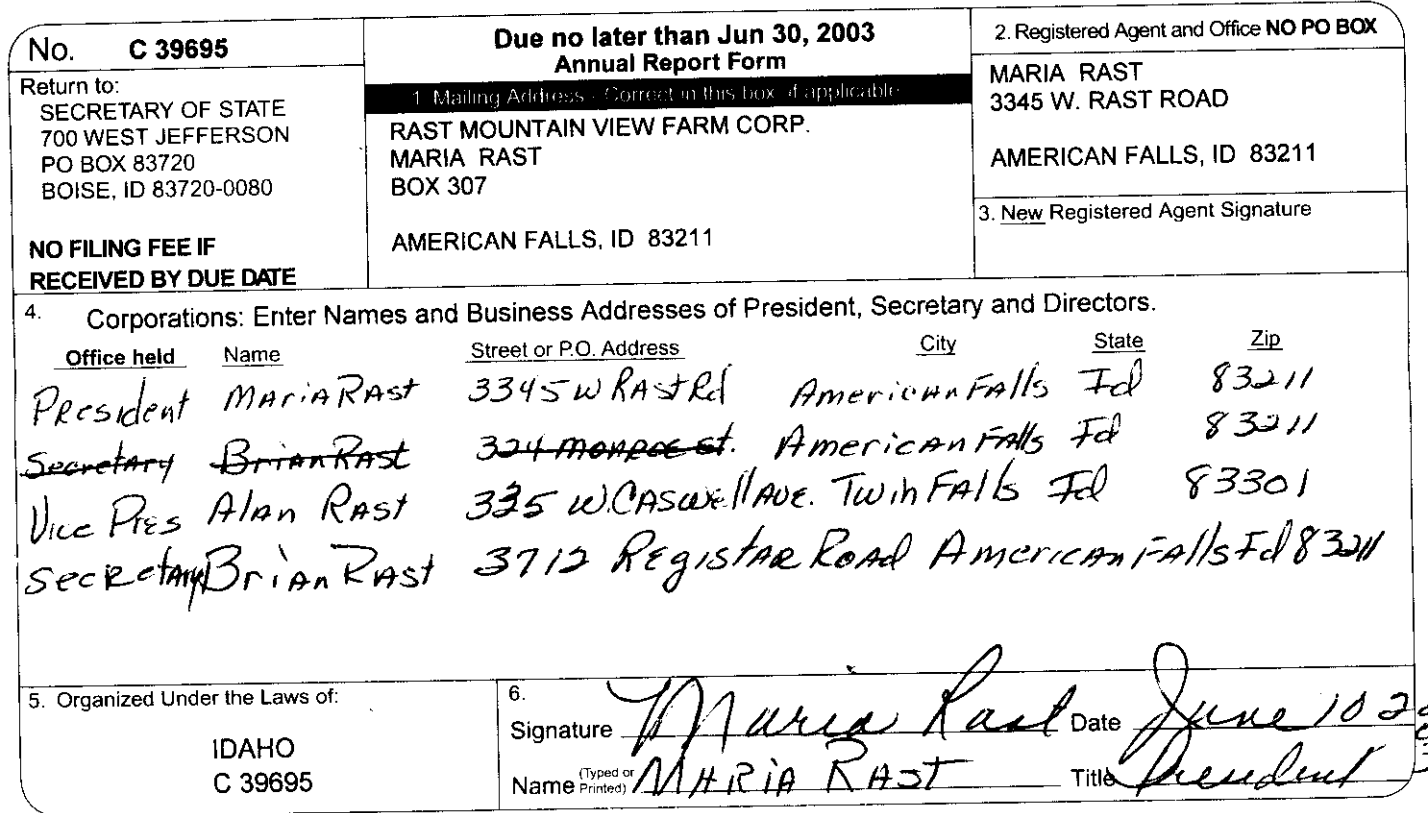 No. C 39695
Return to:
SECRETARY OF STATE
700 WEST JEFFERSON
PO BOX 83720
BOISE, ID 83720-0080
NO FILING FEE IF
RECEIVED BY DUE DATE
Due no later than Jun 30, 2003
Annual Report Form
1. Mailing Address - Correct in this box, if applicable
RAST MOUNTAIN VIEW FARM CORP.
MARIA RAST
BOX 307
AMERICAN FALLS, ID 83211
2. Registered Agent and Office NO PO BOX
MARIA RAST
3345 W. RAST ROAD
AMERICAN FALLS, ID 83211
3. New Registered Agent Signature
4. Corporations: Enter Names and Business Addresses of President, Secretary and Directors.
Office held Name Street or P.O. Address City State Zip
President Maria Rast 3345 W Rast Rd American Falls Id 83211
Secretary Brian Rast 324 Monroe St. American Falls Id 83211
Vice Pres Alan Rast 335 W. Caswell Ave. Twin Falls Id 83301
Secretary Brian Rast 3712 Registar Road American Falls Id 83211
5. Organized Under the Laws of:
IDAHO
C 39695
6.
Signature Maria Rast Date June 10 2003
Name (Typed or Printed) MARIA RAST Title President